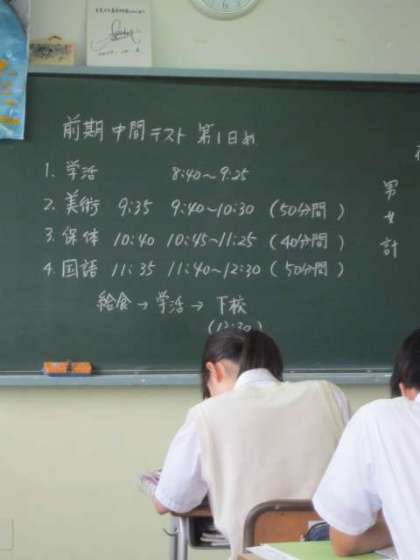 前期 中間テスト 第1日め
1. 学活 8:40～9:25
2. 美術 9:35 9:40～10:30 (50分間)
3. 保体 10:40 10:45～11:25 (40分間)
4. 国語 11:35 11:40～12:30 (50分間)
給食→学活→下校
男
女
計